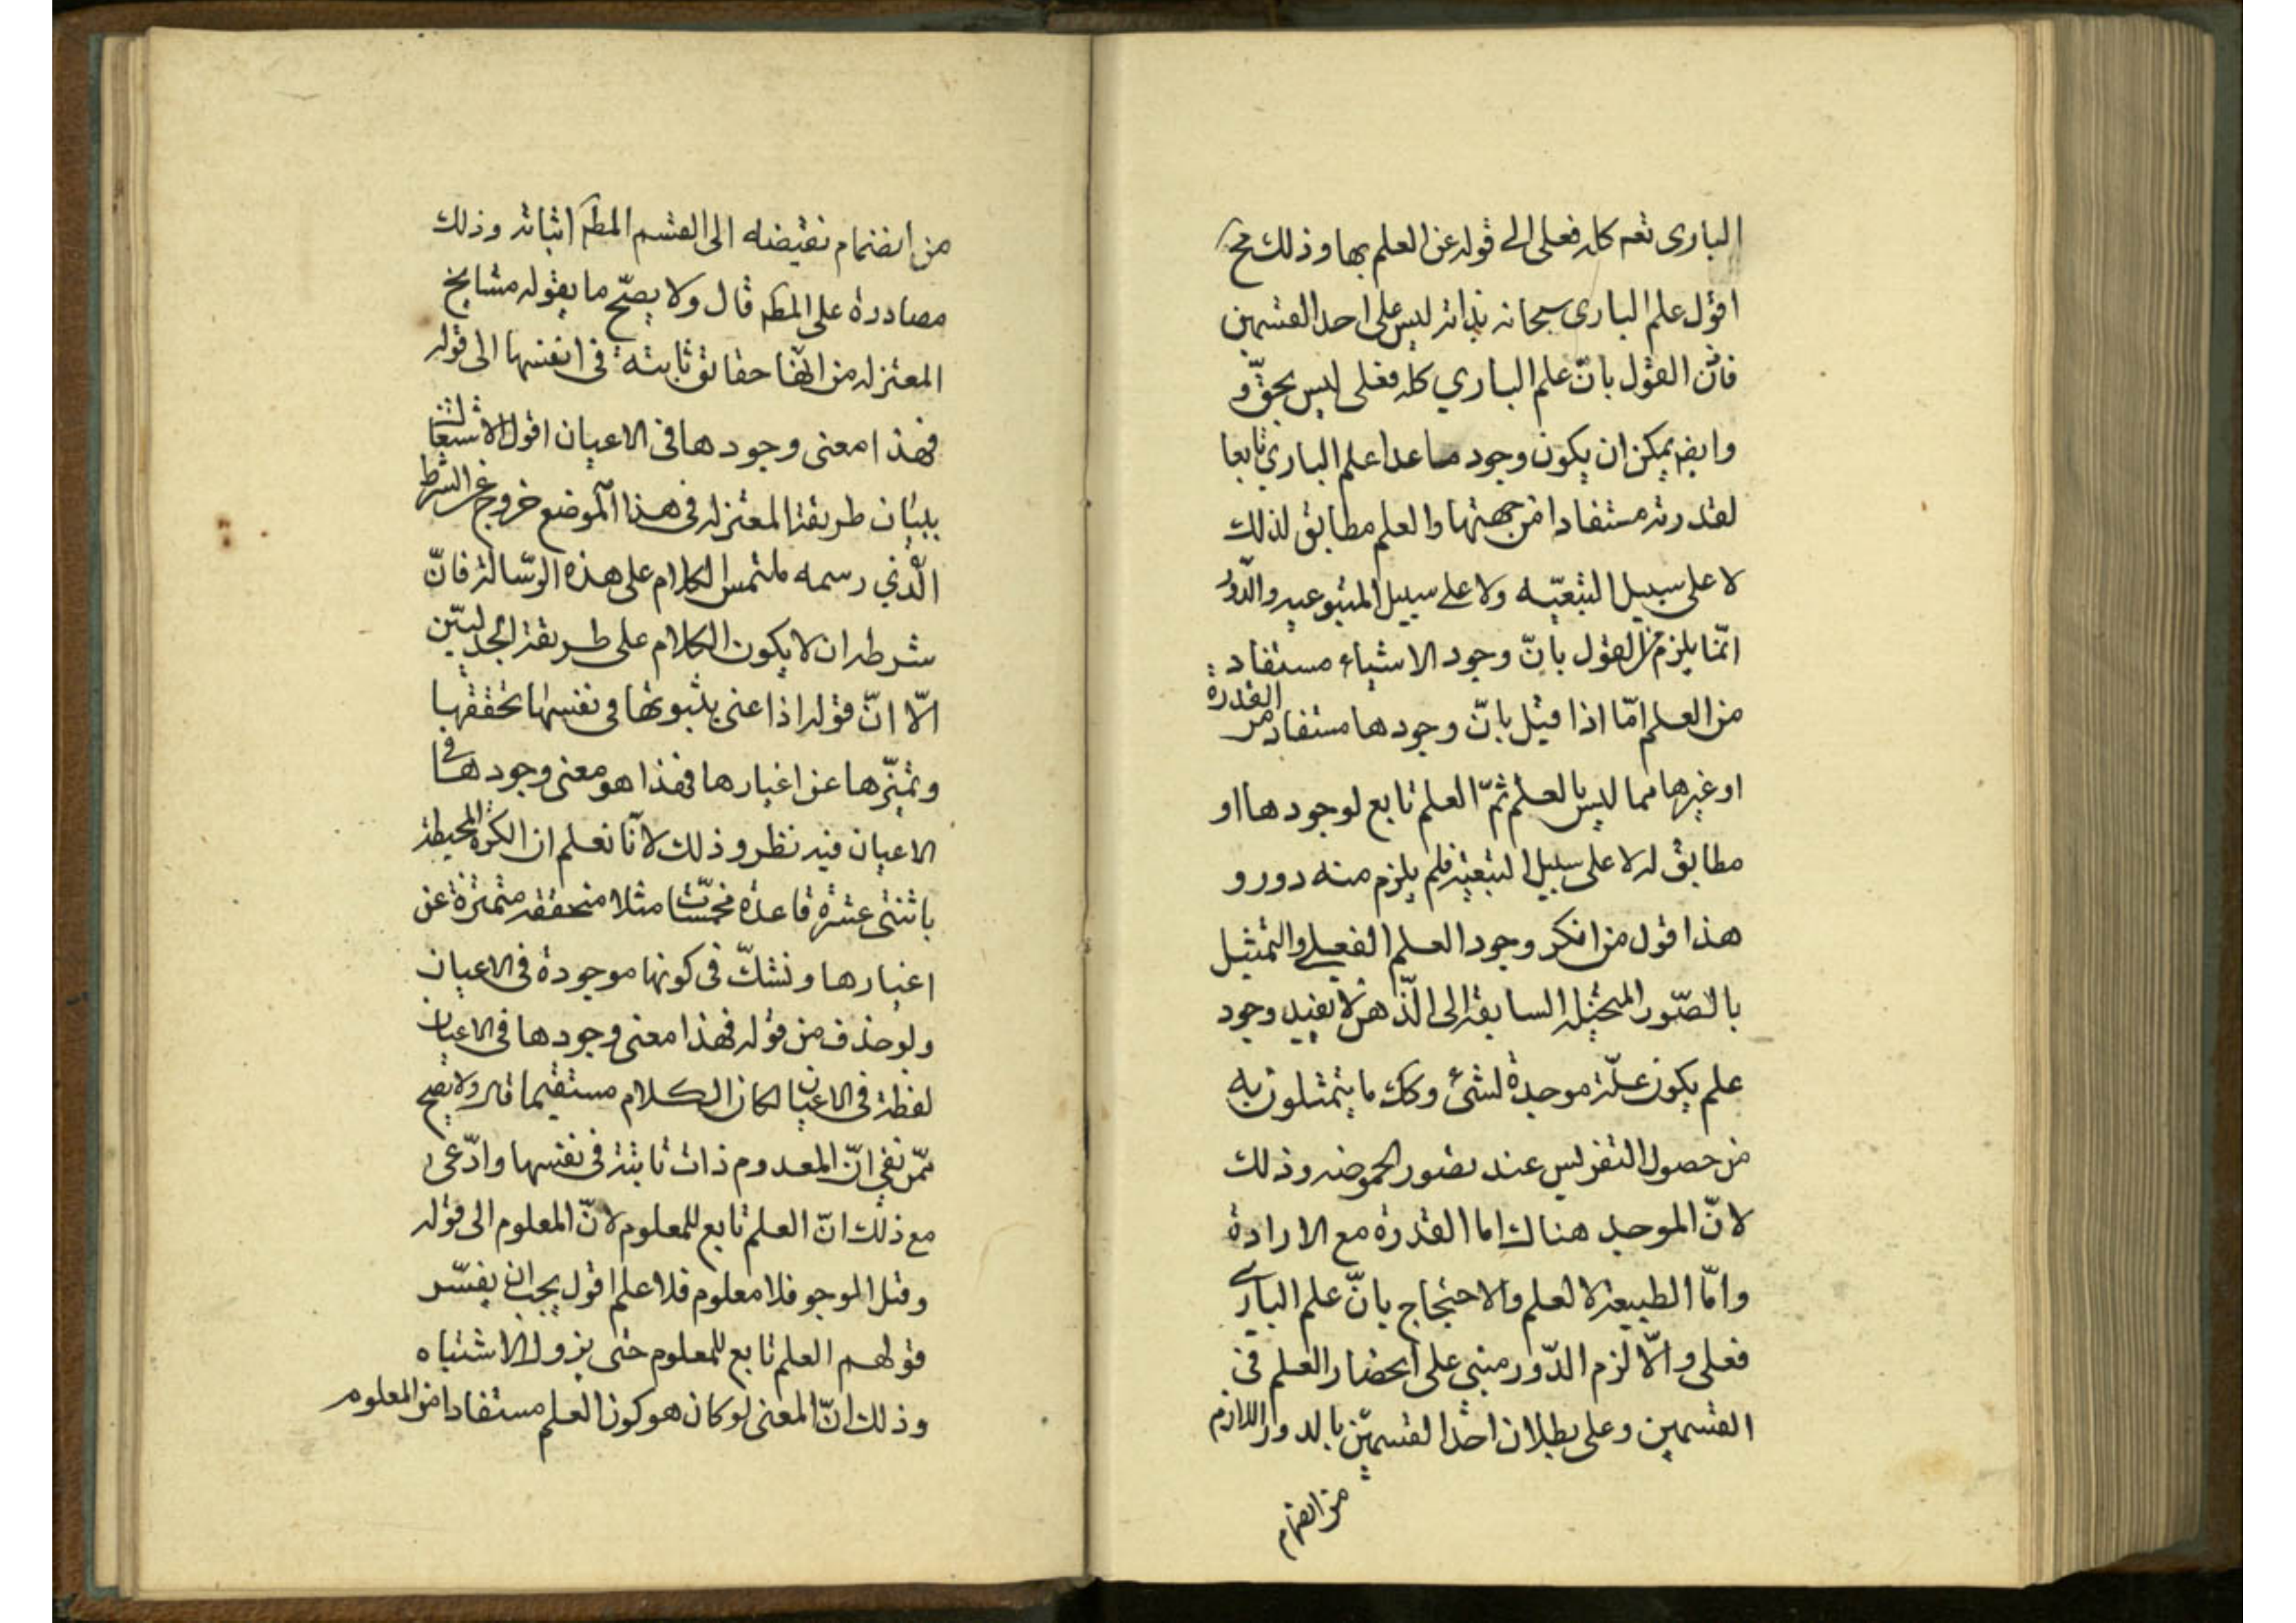 الباری تعہ کلہ فعلی الی قولہ عن العلم بها وذلك مح
اقول علم الباری سبحانہ بذاتہ لیس علی احد القسمین
فانّ القول بانّ علم الباری کلہ فعلی لیس بحقّ و
وایضہ یمکن ان یکون وجود ما عدا علم الباری تابعا
لقدرتہ مستفادا من جهتها والعلم مطابق لذلك
لا علی سبیل التبعیّه ولا علی سبیل المتبوعیہ والدّور
انّما یلزم من القول بانّ وجود الاشیاء مستفاد
من العلم امّا اذا قیل بانّ وجودها مستفاد من القدرة
او غیرها مما لیس بالعلم ثمّ العلم تابع لوجودها او
مطابق لہ لا علی سبیل التبعیة فلم یلزم منه دور و
هذا قول من انکر وجود العلم الفعلی والتمثیل
بالصّور المخیّلہ السابقہ الی الذّهن لا یفید وجود
علم یکون علّة موجدة لشئ وکك ما یتمثلون به
من حصول التضریس عند تصور الحموضہ وذلك
لانّ الموجد هناك اما القدرة مع الارادة
وامّا الطبیعة لا العلم والاحتجاج بانّ علم الباری
فعلی والّا لزم الدّور مبنی علی انحصار العلم فی
القسمین وعلی بطلان احد القسمین بالدور اللازم
من انضمام
من انضمام نقیضه الی القسم المطہ اثباتہ وذلك
مصادرة علی المطہ قال ولا یصحّ ما یقولہ مشایخ
المعتزلہ من انّها حقائق ثابتة فی انفسها الی قولہ
فهذا معنی وجودها فی الاعیان اقول الاشتغال
ببیان طریقة المعتزلہ فی هذا الموضع خروج عن الشرط
الّذی رسمه ملتمس الکلام علی هذه الرسّالة فانّ
شرطہ ان لا یکون الکلام علی طریقة الجدلیّین
الّا انّ قولہ اذا عنی بثبوتها فی نفسها تحققها
وتمیّزها عن اغیارها فهذا هو معنی وجودها فی
الاعیان فیہ نظر وذلك لانّا نعلم ان الکرة المحیطة
باثنتی عشرة قاعدة مخمّسات مثلا متحققہ متمیّزة عن
اغیارها ونشكّ فی کونها موجودة فی الاعیان
ولو حذف من قولہ فهذا معنی وجودها فی الاعیان
لفظة فی الاعیان لکان الکلام مستقیما قال ولا یصح
ممّن نفی انّ المعدوم ذات ثابتة فی نفسها وادّعی
مع ذلك انّ العلم تابع للمعلوم لانّ المعلوم الی قولہ
وقبل الموجو فلا معلوم فلا علم اقول یجب ان یفسّر
قولهم العلم تابع للمعلوم حتی یزول الاشتباه
وذلك انّ المعنی لو کان هو کون العلم مستفادا من المعلوم